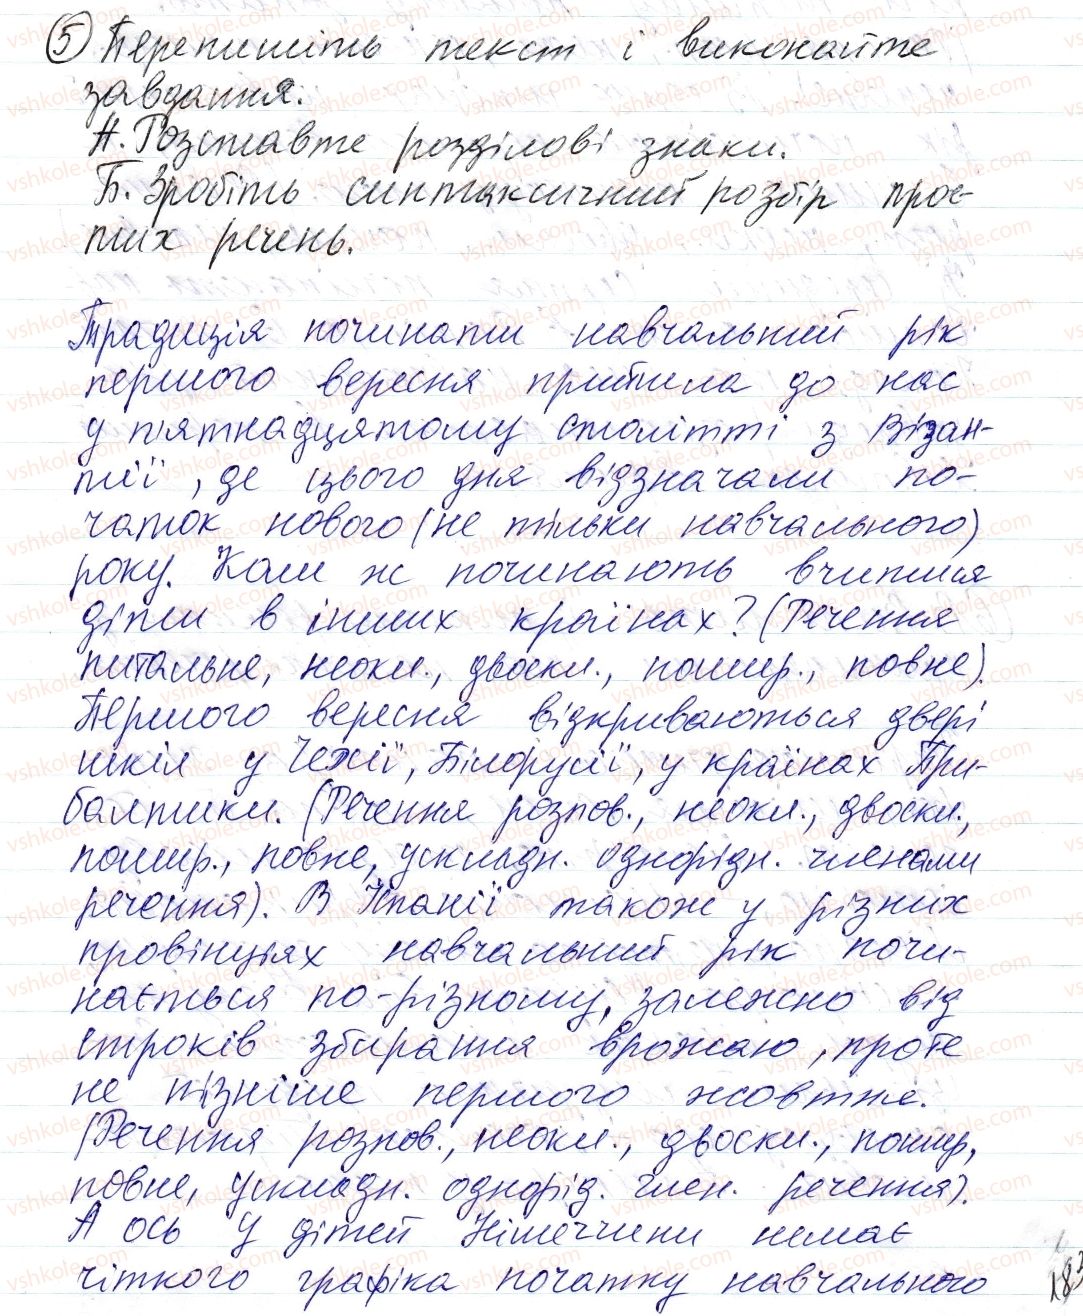 5 Перепишіть текст і виконайте
завдання.
А. Розставте розділові знаки.
Б. Зробіть синтаксичний розбір прос-
тих речень.
Традиція починати навчальний рік
першого вересня прийшла до нас
у п'ятнадцятому столітті з Візан-
тії, де цього дня відзначали по-
чаток нового (не тільки навчального)
року. Коли ж починають вчитися
діти в інших країнах? (Речення
питальне, неокл., двоскл., пошир., повне).
Першого вересня відкриваються двері
шкіл у Чехії, Білорусії, у країнах При-
балтики. (Речення розпов., неокл., двоскл.,
пошир., повне, ускладн. однорідн. членами
речення). В Іспанії також у різних
провінціях навчальний рік почи-
нається по-різному, залежно від
строків збирання врожаю, проте
не пізніше першого жовтня.
(Речення розпов., неокл., двоскл., пошир,
повне, ускладн. однорід. член. речення).
А ось у дітей Німеччини немає
чіткого графіка початку навчального